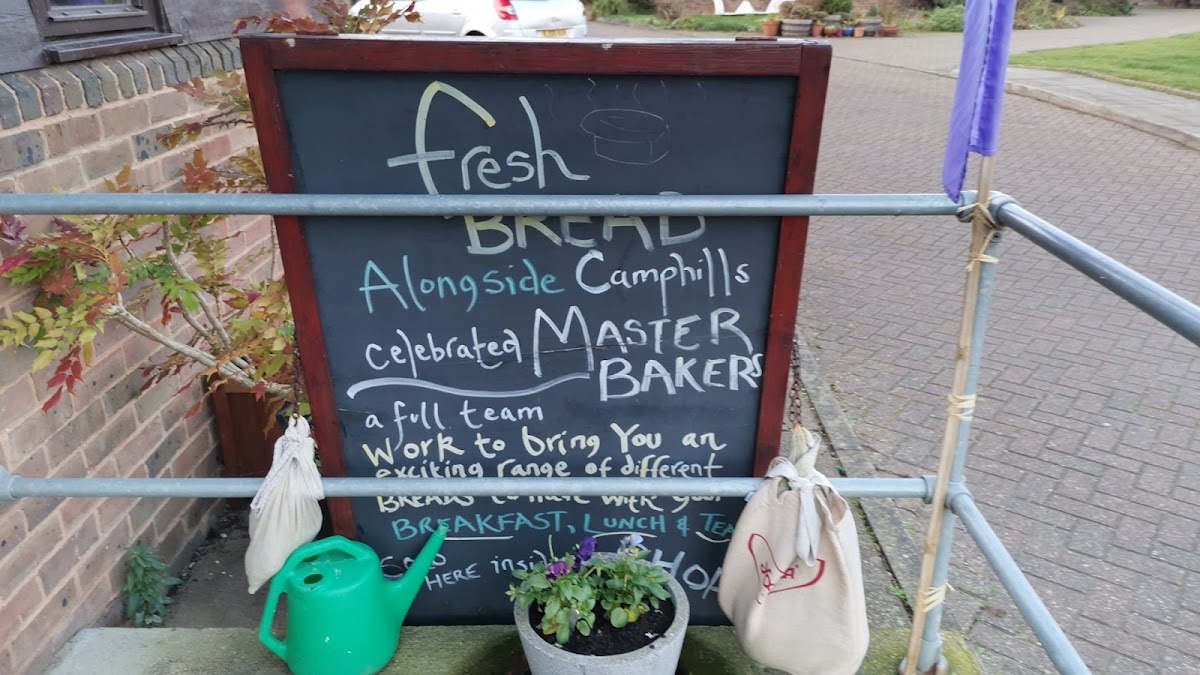 fresh
BREAD
Alongside Camphills
celebrated MASTER
BAKERS
a full team
Work to bring You an
exciting range of different
BREADS to have with your
BREAKFAST, LUNCH & TEA
SOLD
HERE inside
SHOP